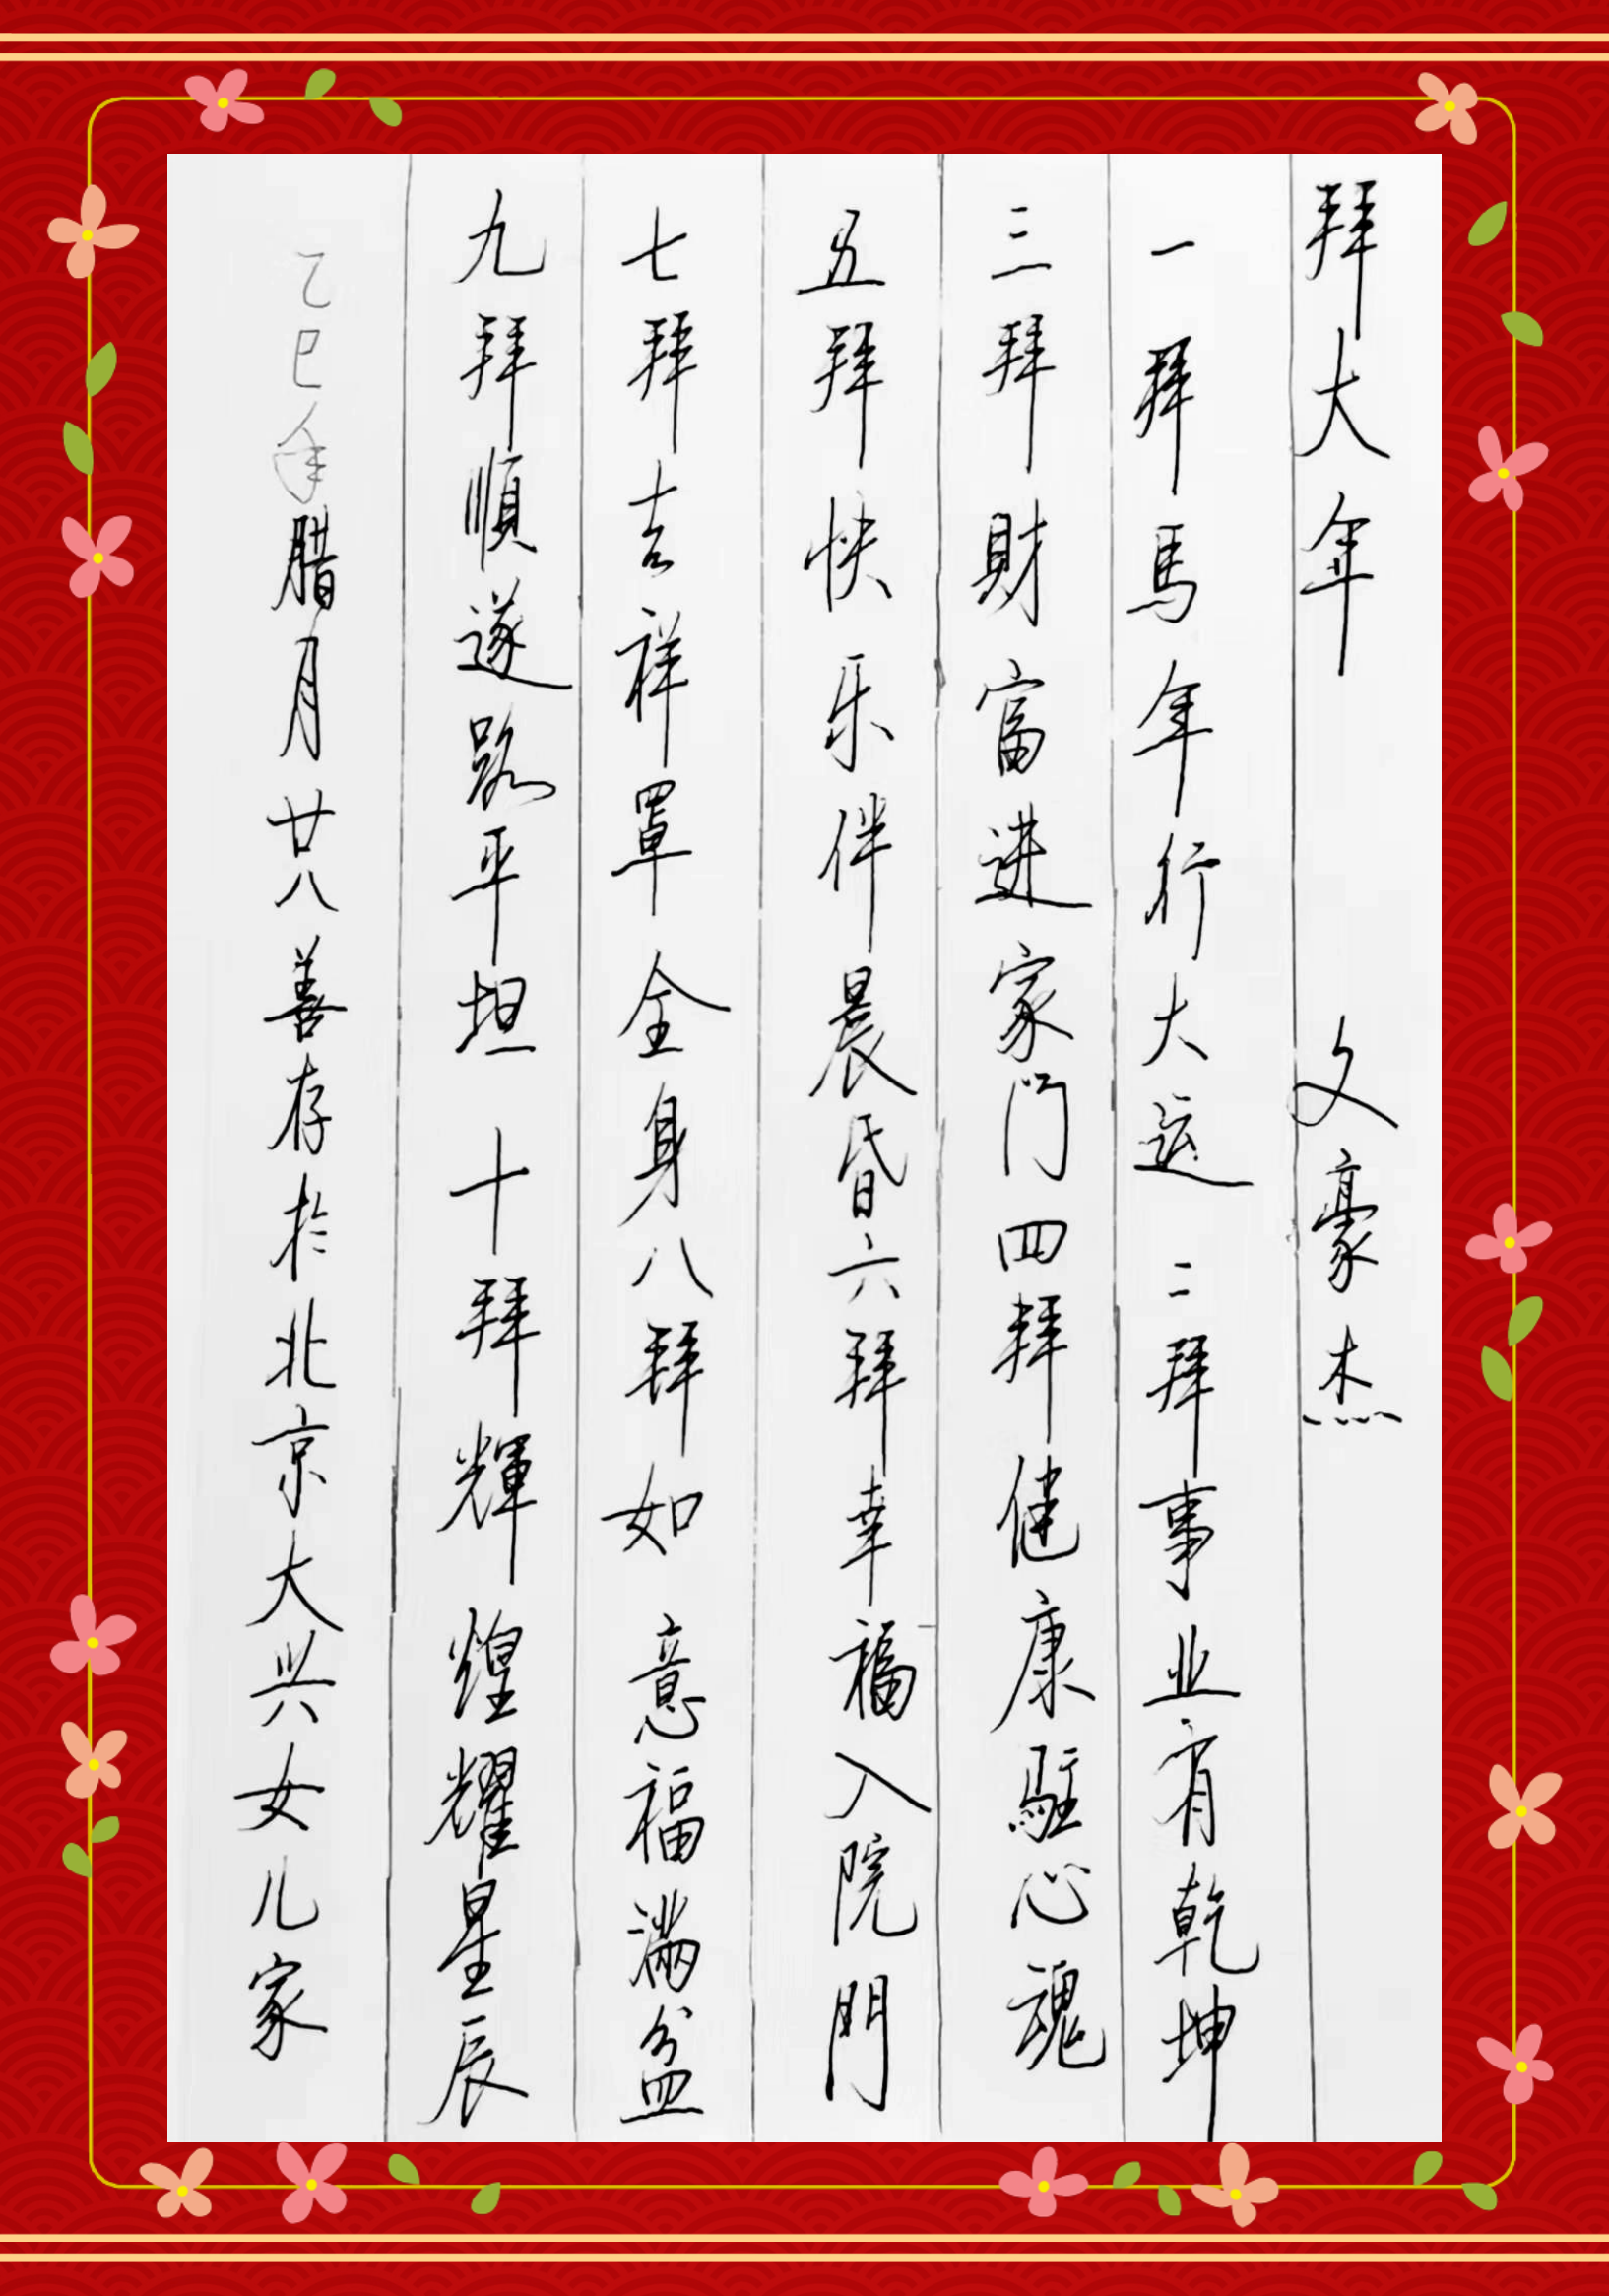 拜大年 文豪杰
一拜馬年行大运 二拜事业有乾坤
三拜財富进家门四拜健康駐心魂
五拜快乐伴晨昏六拜幸福入院門
七拜吉祥罩全身八拜如意福滿盆
九拜順遂路平坦 十拜輝煌耀星辰
乙巳年腊月廿八善存於北京大兴女儿家